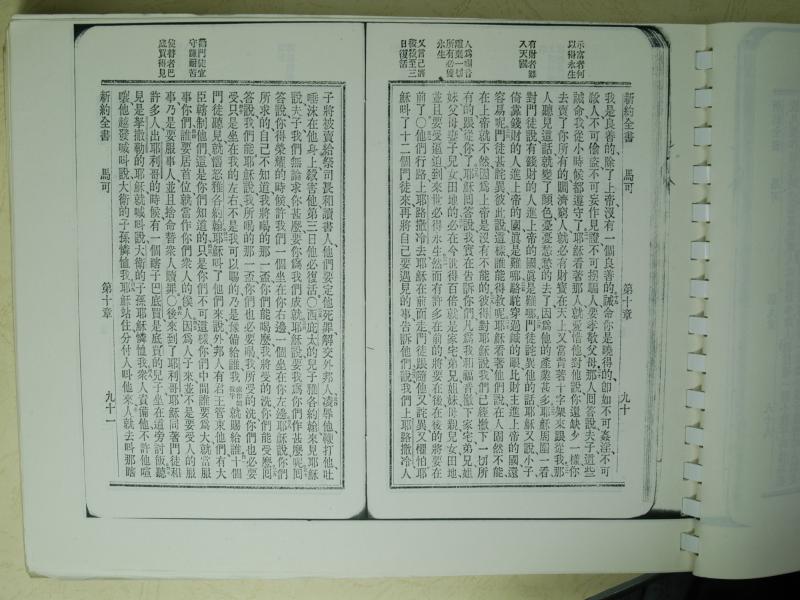 示富者何
以得永生
有財者難
入天國
人爲福音
離棄一切
所有必獲
永生
又言己將
被殺至三
日復活
新約全書 馬可 第十章 九十
我是良善的、除了上帝沒有一個良善的、誡命你是曉得的、卽如不可姦淫、不可
殺人不可偷盜不可妄作見證不可拐騙人要孝敬父母、那人回答說夫子這些
誡命我從小時候都遵守了、耶穌看著那人就愛惜他對他說你還缺少一樣你
去賣了你所有的賙濟窮人就必有財寶在天上又當背著十字架來跟從我那
人聽見這話就變了顏色憂憂愁愁的去了、因爲他的產業甚多耶穌周圍一看
對門徒說有錢財的人進上帝的國眞是難哪門徒詫異他的話耶穌又說小子
倚靠錢財的人進上帝的國眞是難哪駱駝穿過鍼的眼比財主進上帝的國還
容易呢門徒甚詫異彼此說這樣誰能得救呢耶穌看著他們說在人固然不能
在上帝就不然因爲上帝是沒有不能的彼得對耶穌說我們已經撇下一切所
有的跟從你了耶穌回答說我實在告訴你們凡爲我和福音撇下家宅弟兄姐
妹父母妻子兒女田地的必在今世得百倍就是家宅弟兄姐妹母親兒女田地
並且要受逼迫到來世必得永生然而有許多在前的將要在後在後的將要在
前了○他們行路上耶路撒冷去耶穌在前面走門徒跟隨他又詫異又懼怕耶
穌叫了十二個門徒來再將自己要遇見的事告訴他們說我們上耶路撒冷人
誡門徒宜
守謙耐苦
使瞽者巴
底買得見
子將被賣給祭司長和讀書人、他們要定他死罪解交外邦人凌辱他鞭打他吐
唾沫在他身上殺害他第三日他必復活○西庇太的兒子雅各約翰來見耶穌
說夫子我們無論求你甚麼要你爲我們成就耶穌說要我爲你們作甚麼呢回
答說你得榮耀的時候許我們一個坐在你右邊一個坐在你左邊耶穌說你們
所求的自己不知道我將喝的一盃你們能喝麼我將受的洗你們能受麼回
答說我們能耶穌說我所喝的那一盃你們也必要喝我所受的洗你們也必要
受只是坐在我的左右不是我可以賜的乃是豫備給誰我就賜給誰十個
門徒聽見就惱怒雅各約翰耶穌叫了他們來說外邦人有君王管束他們有大
臣轄制他們這是你們知道的只是你們不可這樣你們中間誰要爲大就當服
事你們誰要居首位就當作你們衆人的僕人因爲人子來並不是要受人的服
事乃是要服事人並且捨命替衆人贖罪○後來到了耶利哥耶穌同著門徒和
許多人出耶利哥的時候有一個瞎子巴底買是底買的兒子坐在道旁討飯聽
見是拏撒勒的耶穌就喊叫說大衛的子孫耶穌憐恤我衆人責備他不許他喧
嚷他越發喊叫說大衛的子孫憐恤我耶穌站住分付人叫他來人就去叫那瞎
新約全書 馬可 第十章 九十一